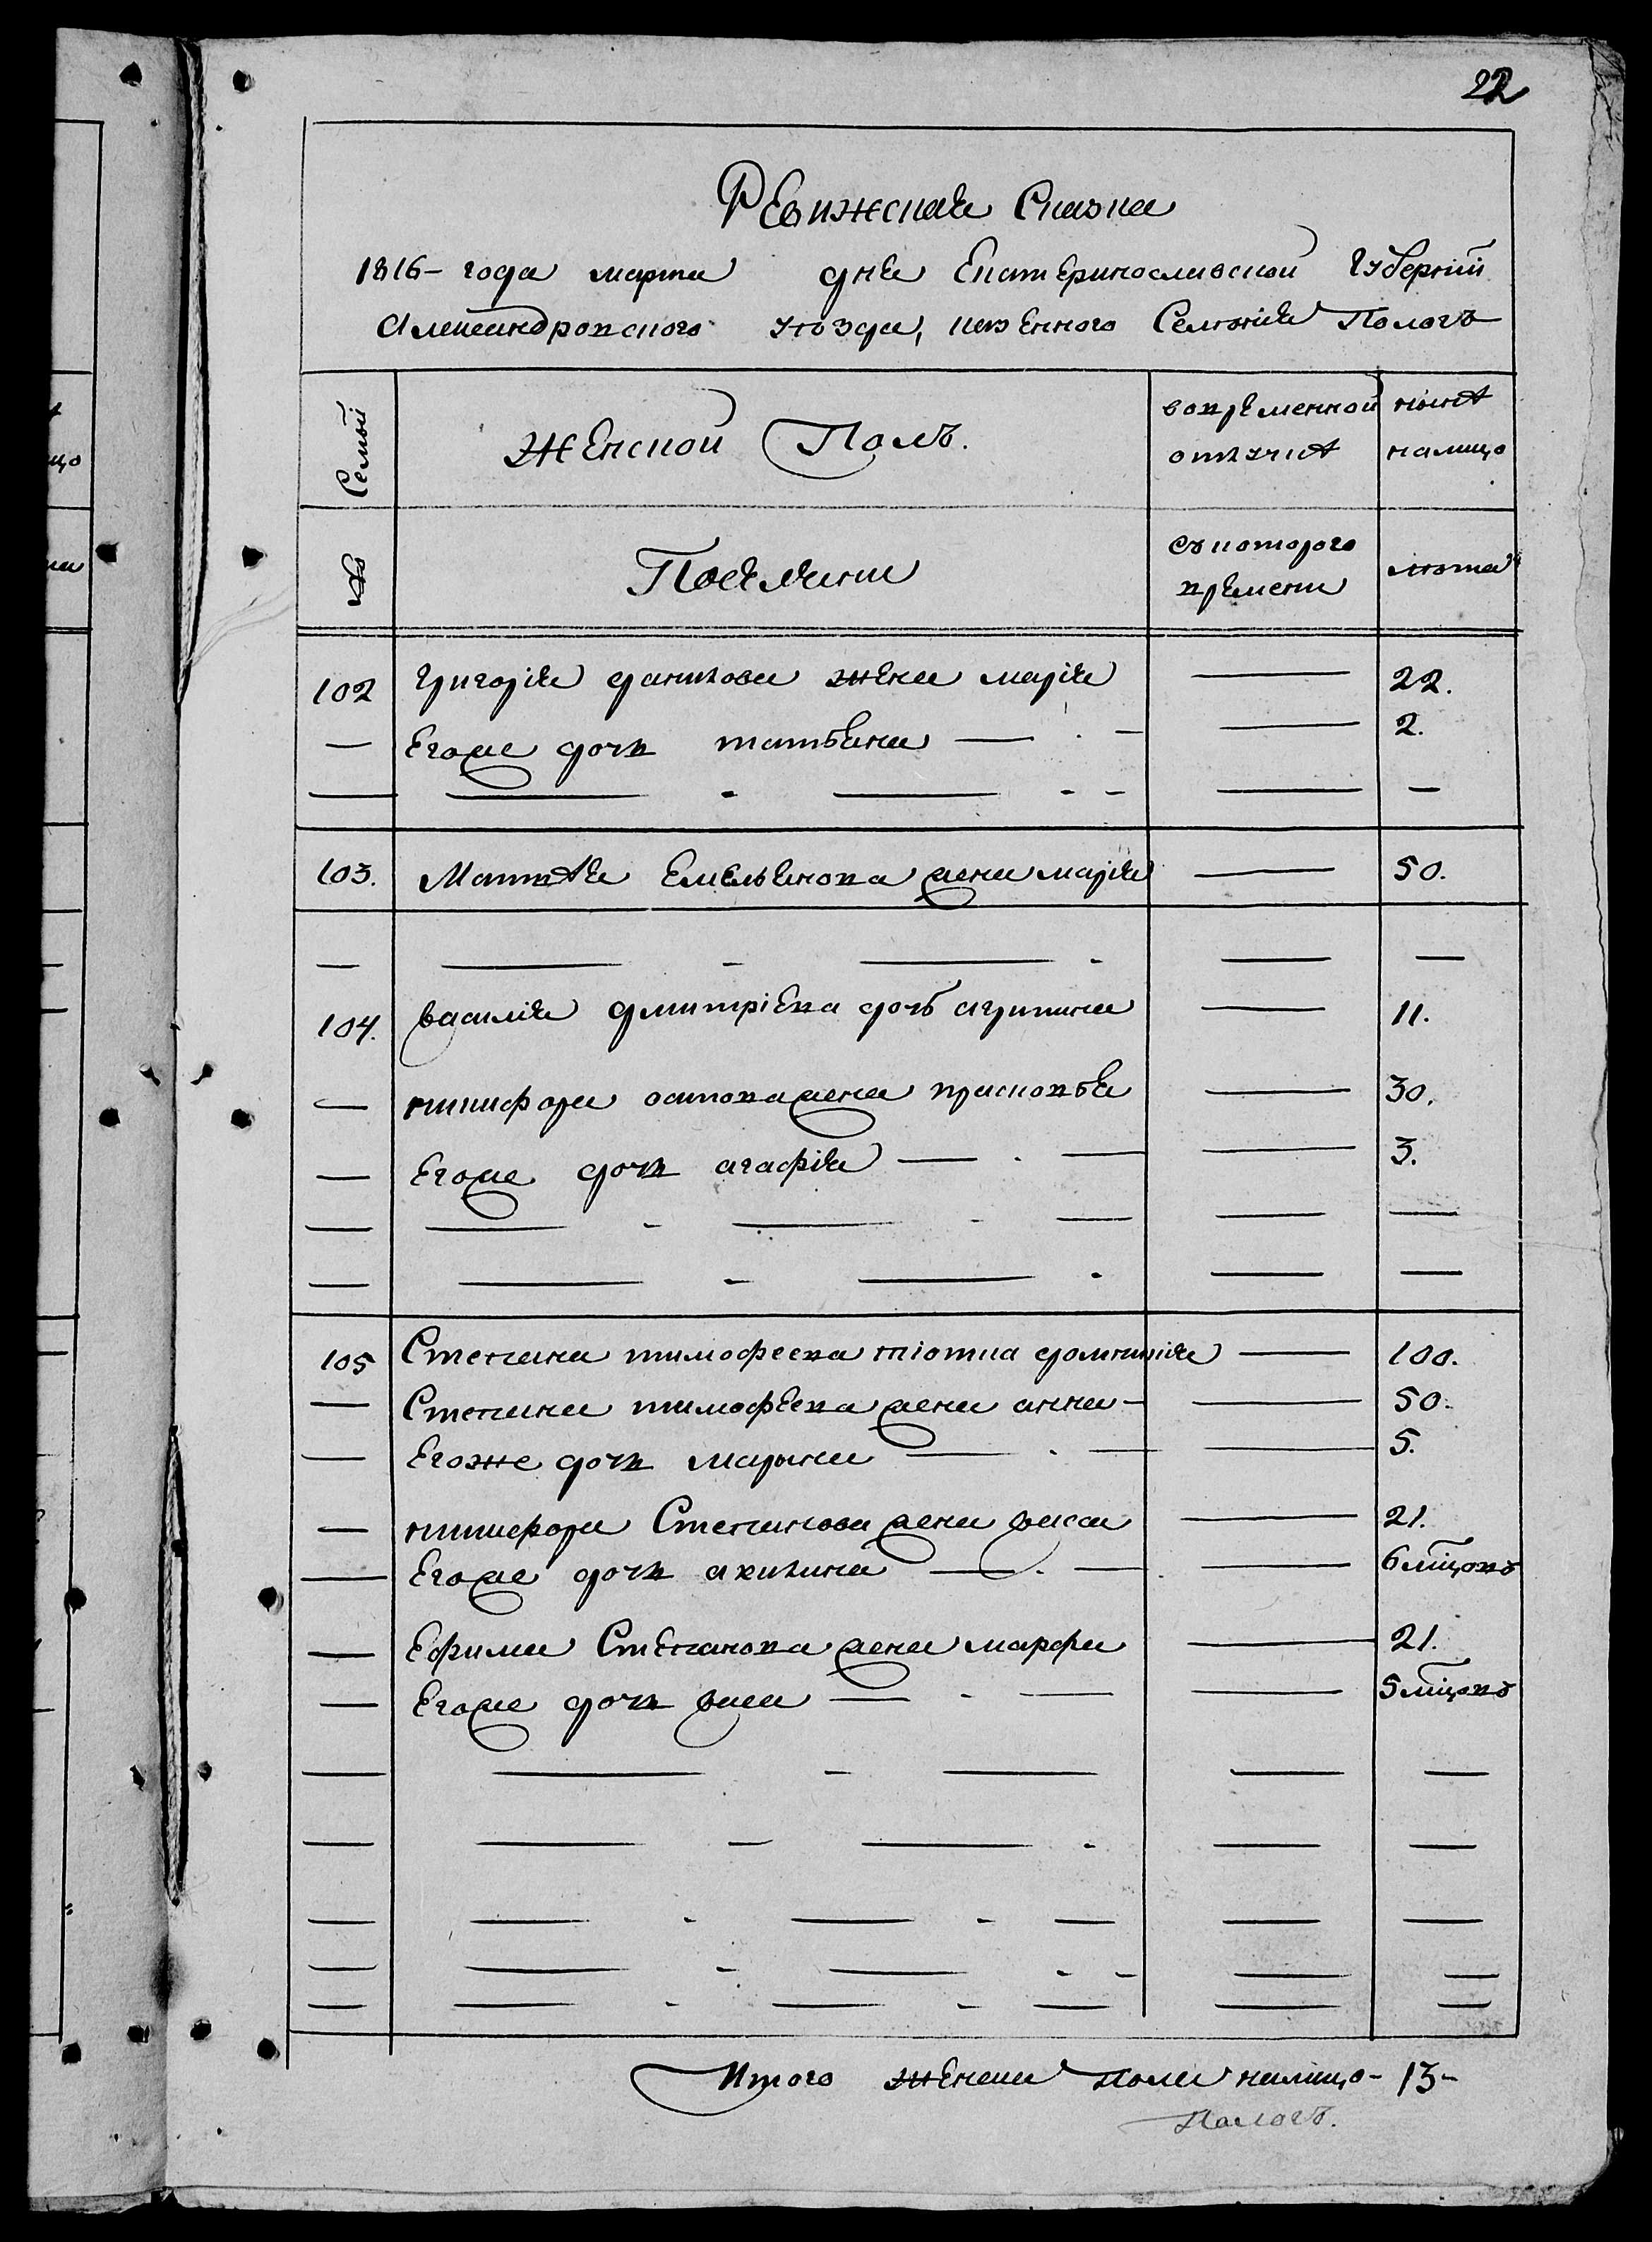 22
Ревижская Сказка
1816– года марта дня Екатеринославской Губерніи
Александровского уѣзда, казенного Селенія Пологъ
Семьи
Женской Полъ.
вовременной отлучкѣ
нынѣ налицо
№
Поселяни
съ которого времени
лѣта
102 Григорія данилова жена марія — 22.
— Егоже дочь татьяна — 2.
103. Матвѣя Емельянова жена марія — 50.
104. василія дмитріева дочь агрипина — 11.
— никифора остопа жена прасковья — 30.
— Егоже дочь агафія — 3.
105 Степана тимофеева тіотка домникія — 100.
— Степана тимофеева жена анна — 50.
— Егоже дочь марына — 5.
— никифора Степанова жена васса — 21.
— Егоже дочь акилина — 6 мцовъ
— Ефима Степанова жена марфа — 21.
— Егоже дочь — 5 мцовъ
Итого женска пола налицо – 13 –
Пологъ.